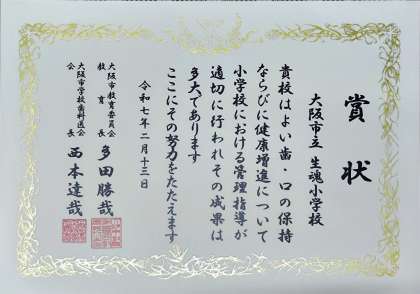 賞状
大阪市立 生魂小学校
貴校はよい歯・口の保持
ならびに健康増進について
小学校における管理指導が
適切に行われその成果は
多大であります
ここにその努力をたたえます
令和七年二月十三日
大阪市教育委員会
教育長 多田勝哉
大阪市学校歯科医会
会長 西本達哉